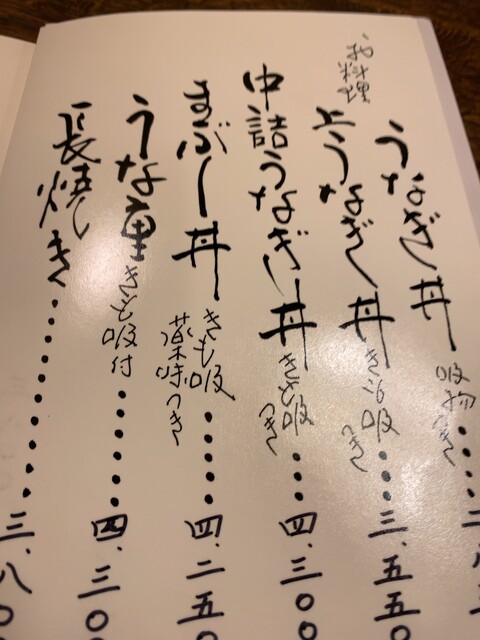 御料理
うなぎ丼 吸物つき・・・・二
上うなぎ丼 きも吸つき・・・三、五五〇
中詰うなぎ丼 きも吸つき・・・四、三〇〇
まぶし丼 きも吸薬味つき・・・・・四、二五〇
うな重 きも吸付・・・・・四、三〇〇
長焼き・・・・・・・・三、八〇